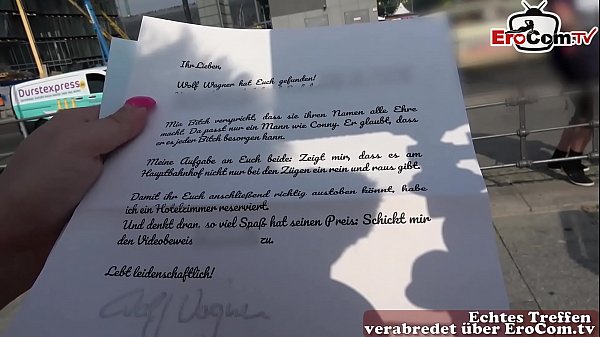 EROCOM.TV
Durstexpress
Ihr Lieben,
Wolf Wagner hat Euch gefunden!
Mia Bitch verspricht, dass sie ihren Namen alle Ehre
macht. Da passt nur ein Mann wie Conny. Er glaubt, dass
er es jeder Bitch besorgen kann.
Meine Aufgabe an Euch beide: Zeigt mir, dass es am
Hauptbahnhof nicht nur bei den Zügen ein rein und raus gibt.
Damit ihr Euch anschließend richtig austoben könnt, habe
ich ein Hotelzimmer reserviert.
Und denkt dran, so viel Spaß hat seinen Preis: Schickt mir
den Videobeweis zu.
Lebt leidenschaftlich!
Wolf Wagner
Echtes Treffen
verabredet über EroCom.tv